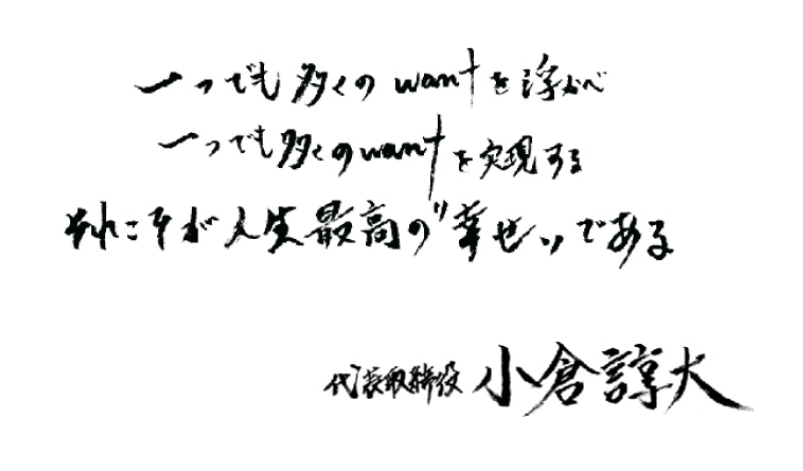 一つでも多くのwantを浮かべ
一つでも多くのwantを実現する
それこそが人生最高の"幸せ"である
代表取締役 小倉諄大